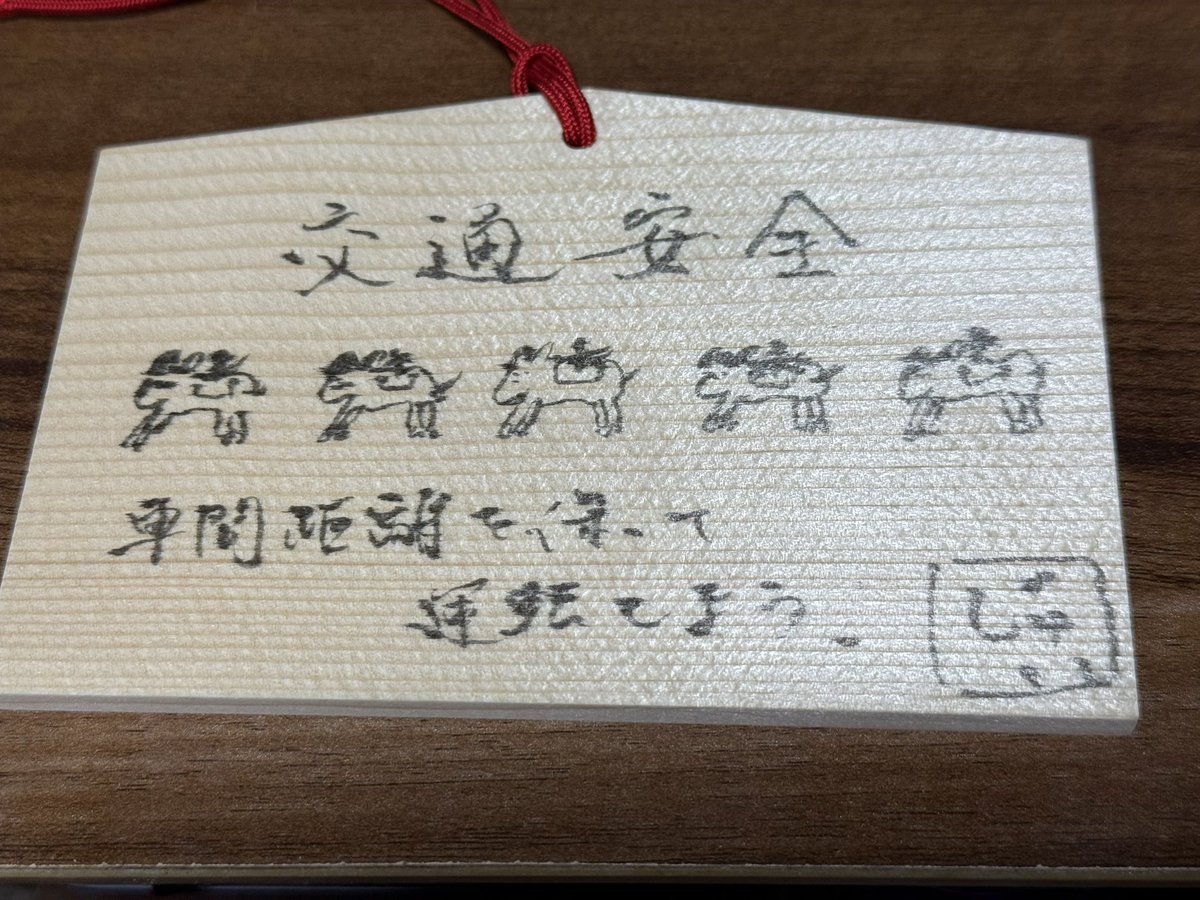 交通安全
車間距離を保って
運転しよう。